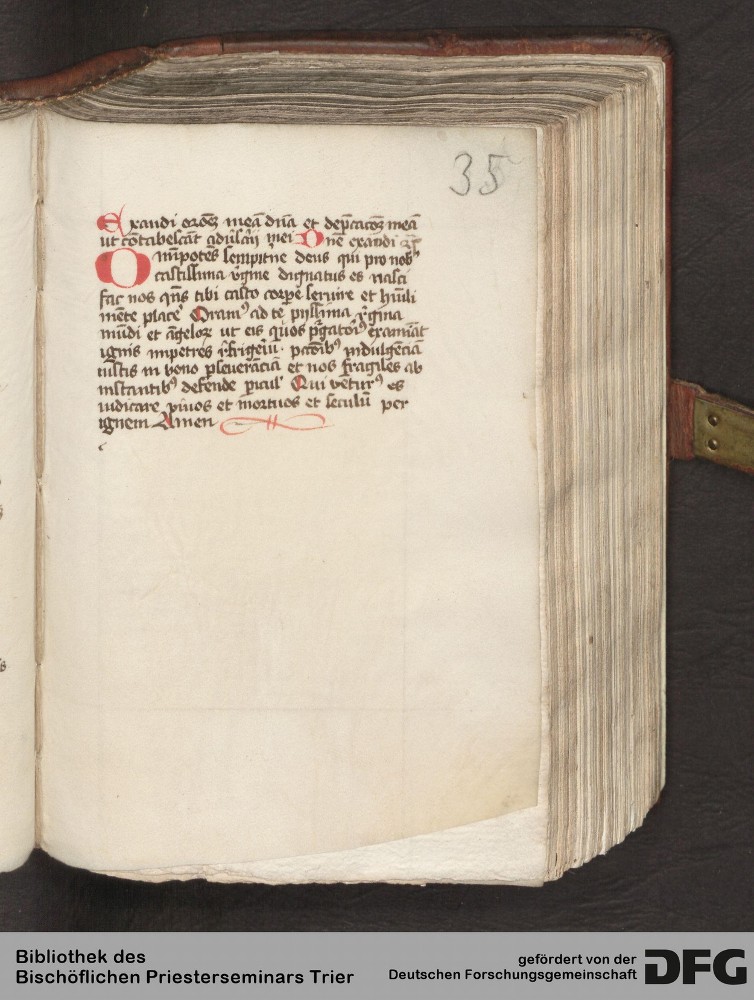 35
Exaudi oroēz meā dn̄a et dep̄catōz meā
ut cōtabescāt adūsarij mei Dn̄e exaudi
Omīpotēs sempit̄ne deus qui pro nobꝰ
castissima v̄gine dignatus es nasci
fac nos qn̄s tibi casto corpe seruire et hūīli
mēte place᷑ Oramꝰ ad te pijssima v̄gina
mūdi et āgeloꝝ ut eis quos p̄gatoriꝰ examiāt
ignis impetres refrigeiū pctōribꝰ indulgēciā
iustis in bono pseuerāciā et nos fragiles ab
instantibꝰ defende picul᷑ Qui vēturꝰ es
iudicare viuos et mortuos et seculū per
ignem Amen
Bibliothek des
Bischöflichen Priesterseminars Trier
gefördert von der
Deutschen Forschungsgemeinschaft
DFG